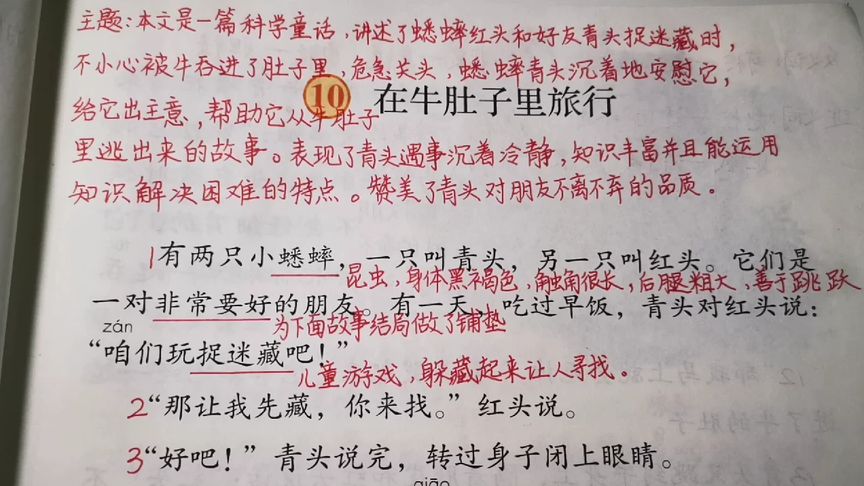 主题:本文是一篇科学童话,讲述了蟋蟀红头和好友青头捉迷藏时,
不小心被牛吞进了肚子里,危急关头,蟋蟀青头沉着地安慰它,
给它出主意,帮助它从牛肚子
10 在牛肚子里旅行
里逃出来的故事。表现了青头遇事沉着冷静,知识丰富并且能运用
知识解决困难的特点。赞美了青头对朋友不离不弃的品质。
1有两只小蟋蟀,一只叫青头,另一只叫红头。它们是
昆虫,身体黑褐色,触角很长,后腿粗大,善于跳跃
一对非常要好的朋友。有一天,吃过早饭,青头对红头说:
为下面故事结局做了铺垫
zán
“咱们玩捉迷藏吧!”
儿童游戏,躲藏起来让人寻找。
2“那让我先藏,你来找。”红头说。
3“好吧!”青头说完,转过身子闭上眼睛。
qiāo